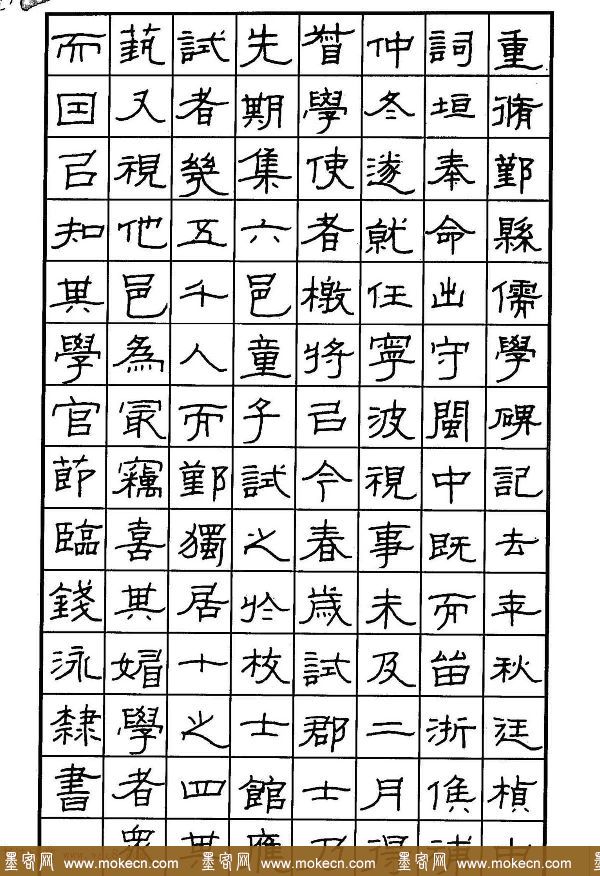 重脩鄞縣儒學碑記去年秋廷楨由
詞垣奉命出守閩中既而留浙候補
仲冬遂就任寧波視事未及二月得
督學使者檄將以今春歲試郡士乃
先期集六邑童子試之於校士館應
試者幾五千人而鄞獨居十之四其
蓺又視他邑為冣竊喜其媚學者眾
而因以知其學官節臨錢泳隸書
墨客网 www.mokecn.com 墨客网 www.mokecn.com 墨客网 www.mokecn.com